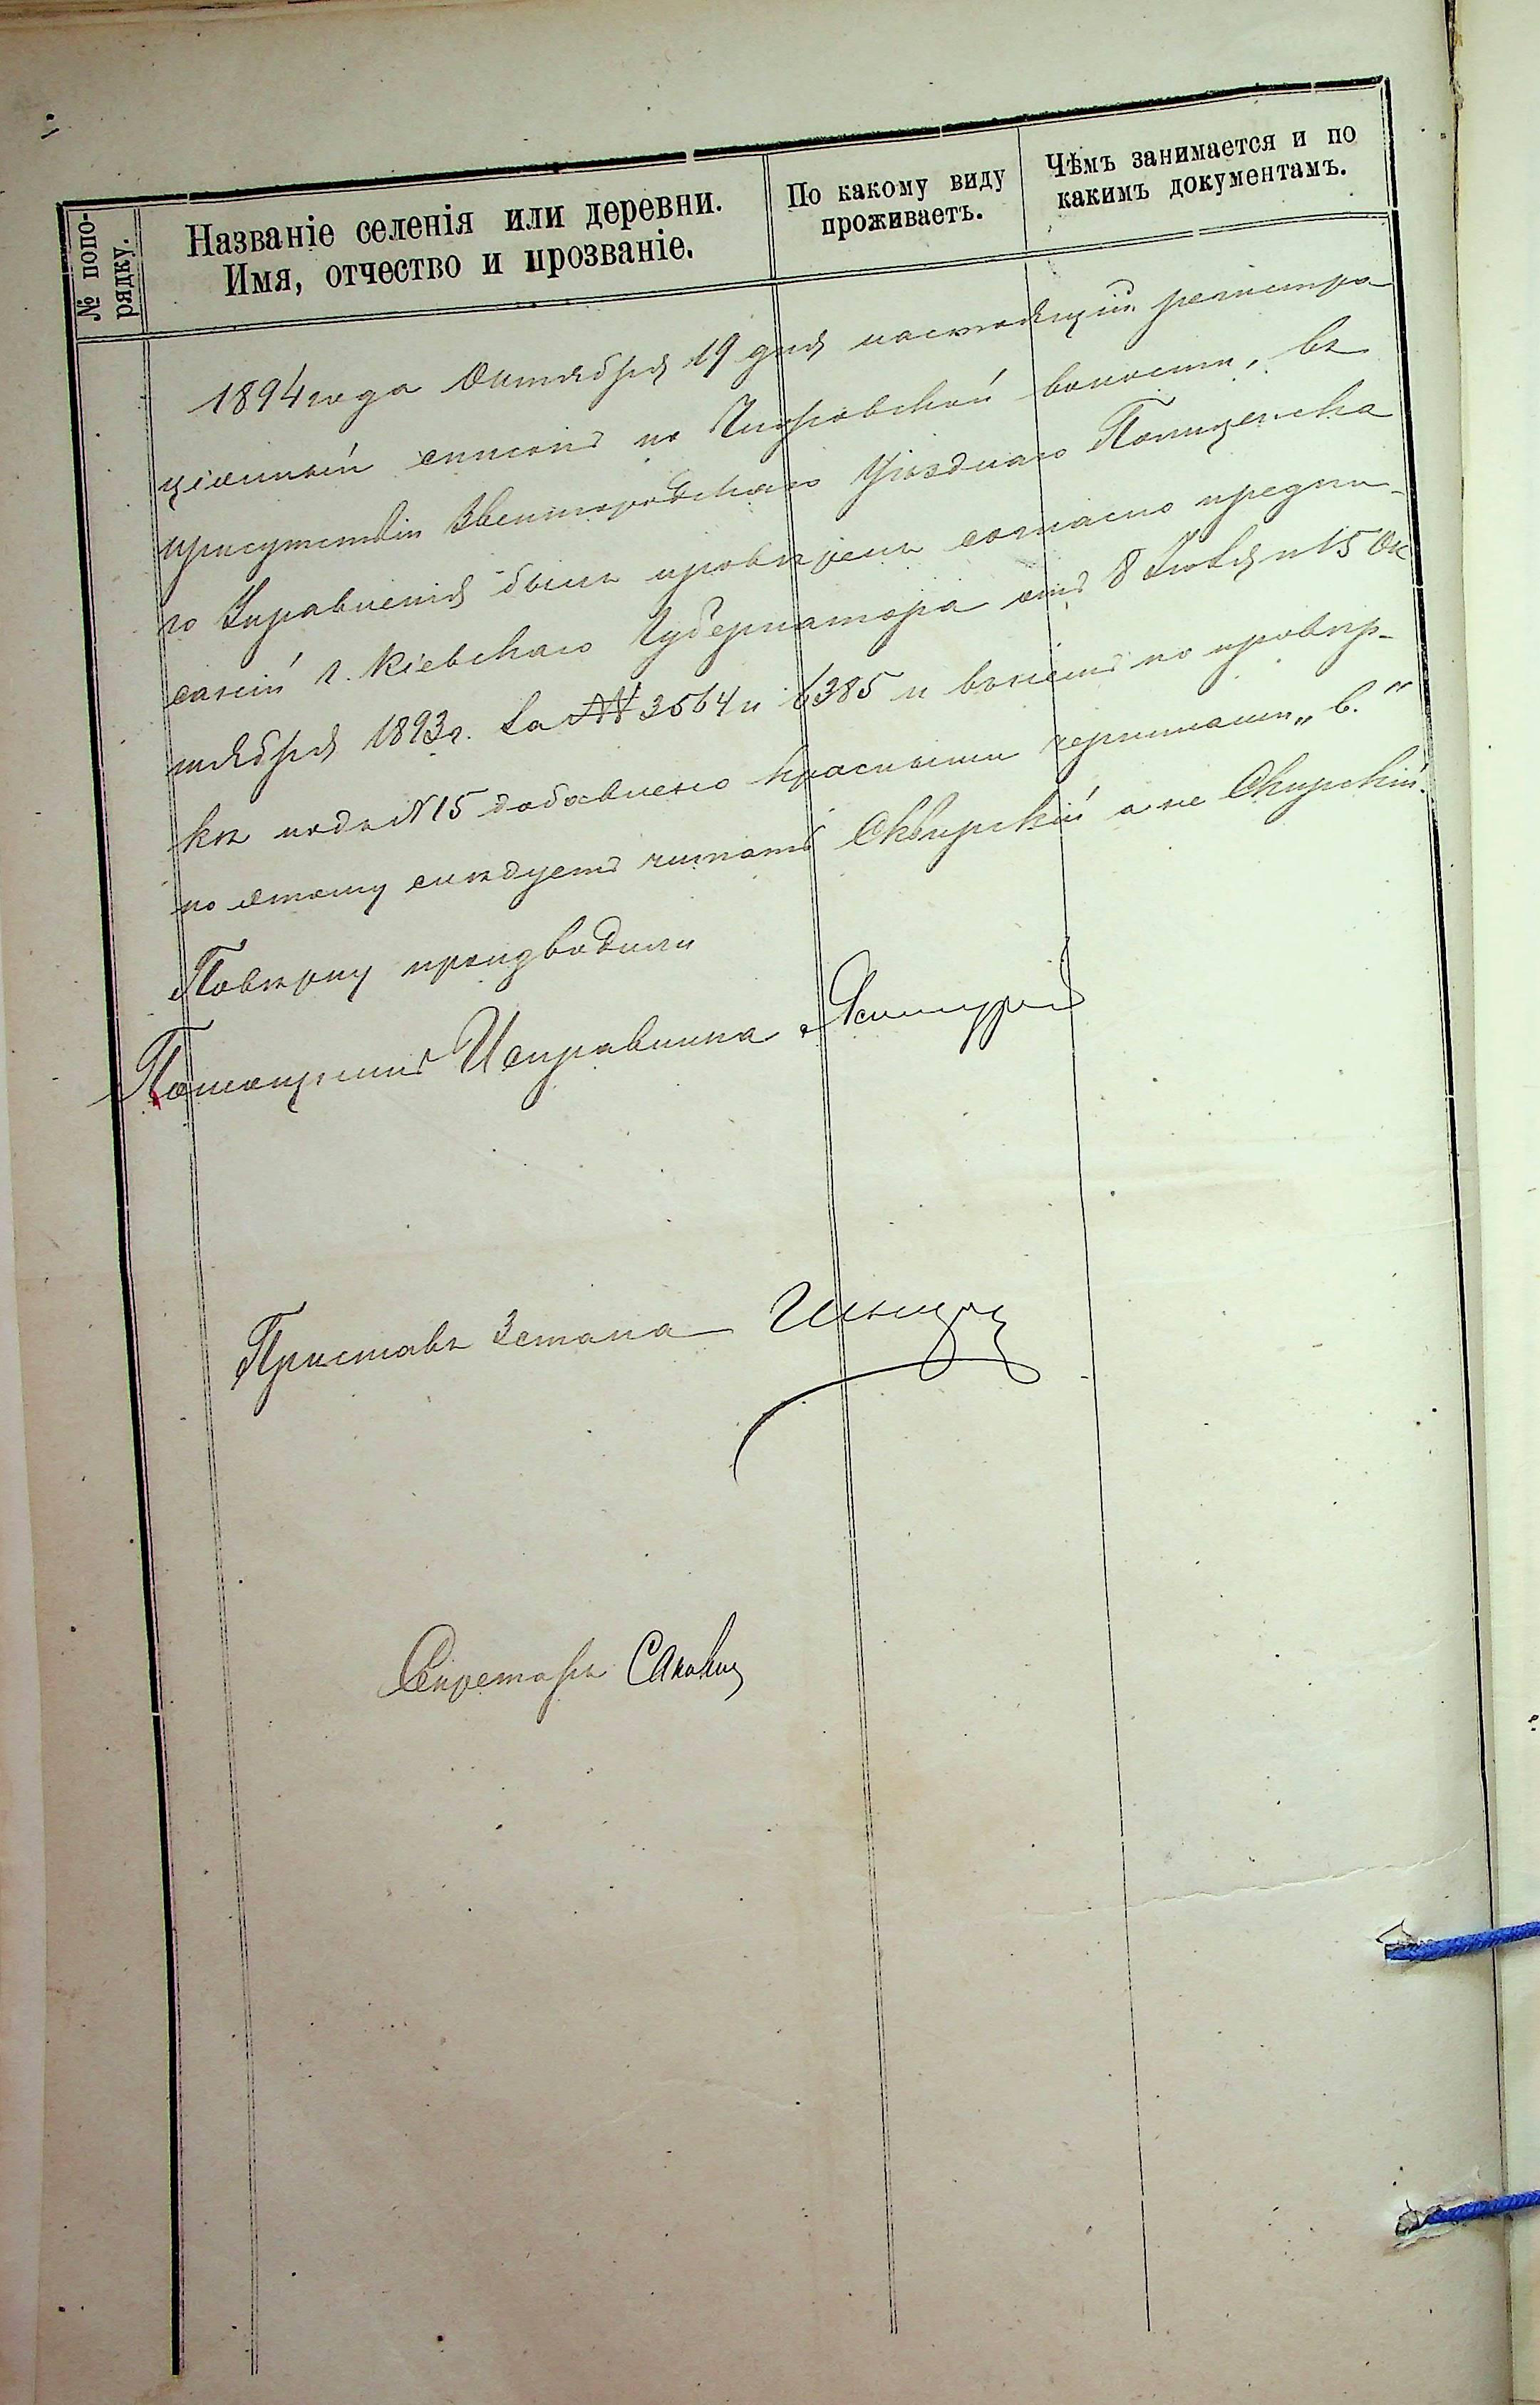 № попо-
рядку.
Названіе селенія или деревни.
Имя, отчество и прозваніе.
По какому виду
проживаетъ.
Чѣмъ занимается и по
какимъ документамъ.
1894 года Октября 19 дня настоящій регистра
ціонный списокъ по волости, въ
присутствіи Звенигородскаго Уѣзднаго Полицейска
го Управленія былъ провѣренъ согласно предпи-
саній г. Кіевскаго Губернатора отъ 8 Іюля и 15 Ок
тября 1893 г. за №№ 3564 и 6385 и при провѣр-
кѣ подъ №15 добавлено красными чернилами „в.“
по этому слѣдуетъ читать Сквирскій а не Скирскій.
Повѣрку производили
Помощникъ Исправника
Приставъ 3 стана
Секретарь